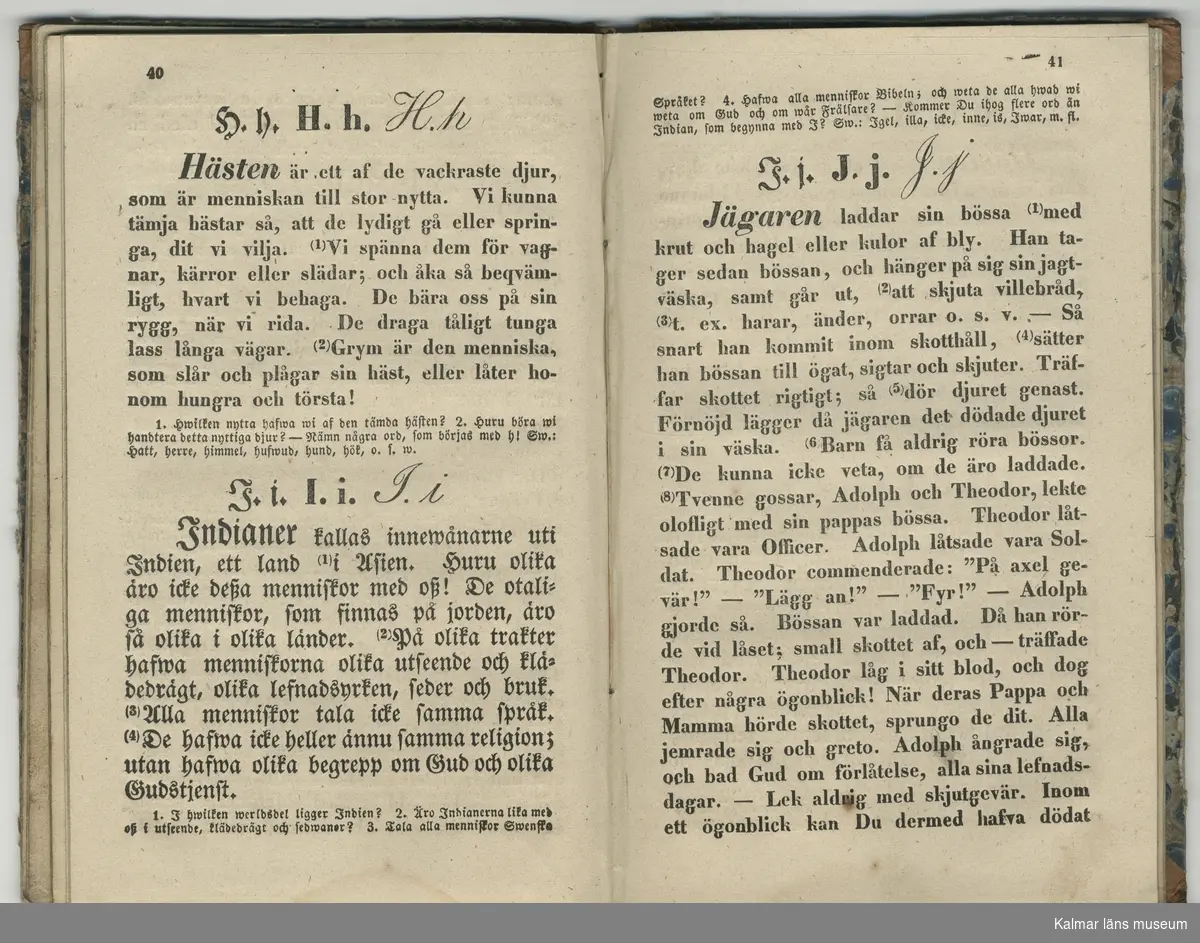 40
H. h. H. h. H. h
Hästen är ett af de vackraste djur,
som är menniskan till stor nytta. Vi kunna
tämja hästar så, att de lydigt gå eller sprin-
ga, dit vi vilja. (1)Vi spänna dem för vag-
nar, kärror eller slädar; och åka så beqväm-
ligt, hvart vi behaga. De bära oss på sin
rygg, när vi rida. De draga tåligt tunga
lass långa vägar. (2)Grym är den menniska,
som slår och plågar sin häst, eller låter ho-
nom hungra och törsta!
1. Hwilken nytta hafwa wi af den tämda hästen? 2. Huru böra wi
handtera detta nyttiga djur? — Nämn några ord, som börjas med h! Sw.:
Hatt, herre, himmel, hufwud, hund, hök, o. s. w.
I. i. I. i. I. i
Indianer kallas innewånarne uti
Indien, ett land (1)i Asien. Huru olika
äro icke deßa menniskor med oß! De otali-
ga menniskor, som finnas på jorden, äro
så olika i olika länder. (2)På olika trakter
hafwa menniskorna olika utseende och klä-
dedrägt, olika lefnadsyrken, seder och bruk.
(3)Alla menniskor tala icke samma språk.
(4)De hafwa icke heller ännu samma religion;
utan hafwa olika begrepp om Gud och olika
Gudstjenst.
1. I hwilken werldsdel ligger Indien? 2. Äro Indianerna lika med
oß i utseende, klädedrägt och sedwanor? 3. Tala alla menniskor Swenska
41
Språket? 4. Hafwa alla menniskor Bibeln; och weta de alla hwad wi
weta om Gud och om wår Frälsare? — Kommer Du ihog flere ord än
Indian, som begynna med I? Sw.: Igel, illa, icke, inne, is, Iwar, m. fl.
J. j. J. j. J. j
Jägaren laddar sin bössa (1)med
krut och hagel eller kulor af bly. Han ta-
ger sedan bössan, och hänger på sig sin jagt-
väska, samt går ut, (2)att skjuta villebråd,
(3)t. ex. harar, änder, orrar o. s. v. — Så
snart han kommit inom skotthåll, (4)sätter
han bössan till ögat, sigtar och skjuter. Träf-
far skottet rigtigt; så (5)dör djuret genast.
Förnöjd lägger då jägaren det dödade djuret
i sin väska. (6Barn få aldrig röra bössor.
(7)De kunna icke veta, om de äro laddade.
(8)Tvenne gossar, Adolph och Theodor, lekte
olofligt med sin pappas bössa. Theodor låt-
sade vara Officer. Adolph låtsade vara Sol-
dat. Theodor commenderade: ”På axel ge-
vär!” — ”Lägg an!” — ”Fyr!” — Adolph
gjorde så. Bössan var laddad. Då han rör-
de vid låset; small skottet af, och — träffade
Theodor. Theodor låg i sitt blod, och dog
efter några ögonblick! När deras Pappa och
Mamma hörde skottet, sprungo de dit. Alla
jemrade sig och greto. Adolph ångrade sig,
och bad Gud om förlåtelse, alla sina lefnads-
dagar. — Lek aldrig med skjutgevär. Inom
ett ögonblick kan Du dermed hafva dödat
Kalmar läns museum